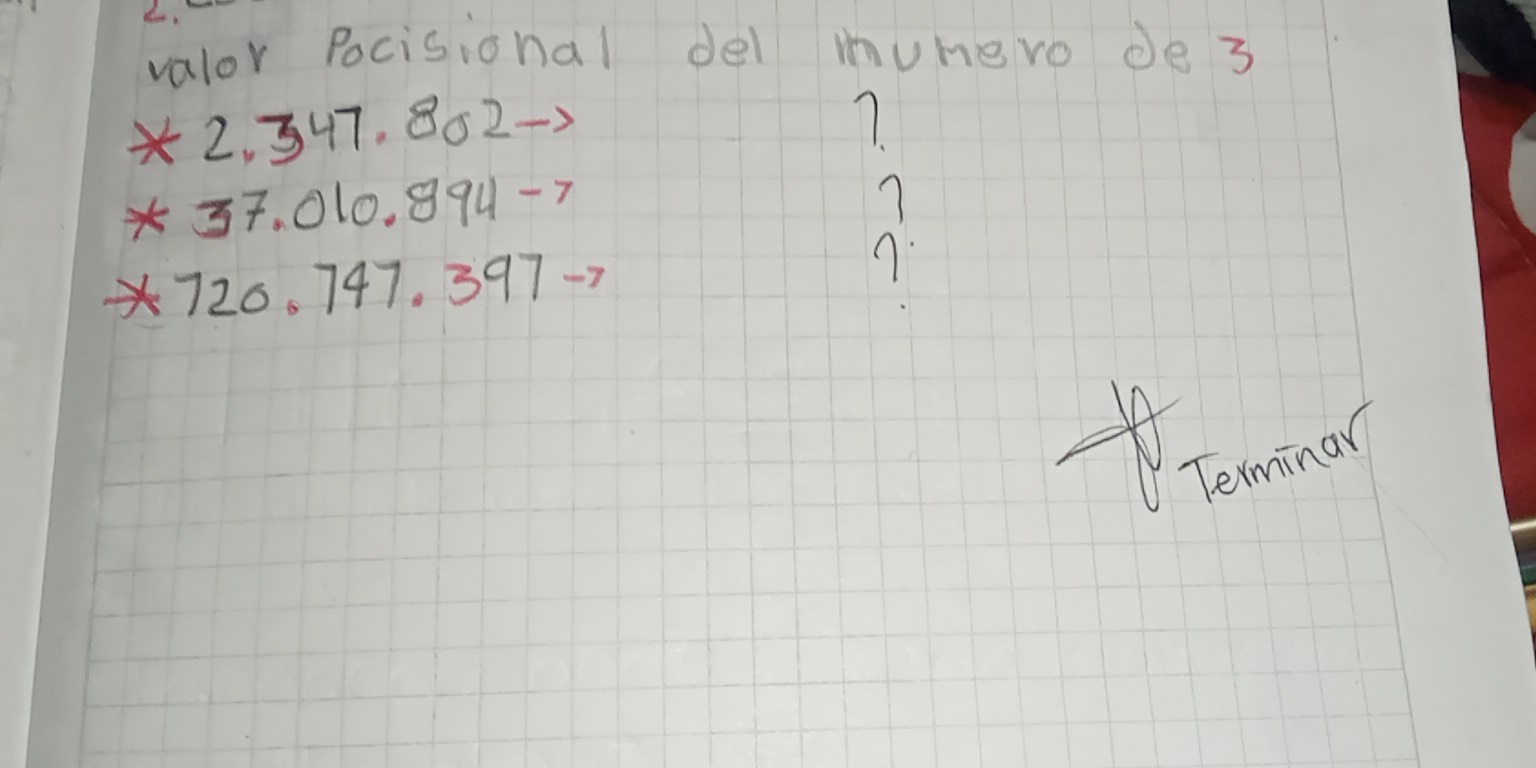 2.
valor Pocisional del munero de 3
* 2.347.802->
?
* 37.010.894->
?
* 720.747.397->
?
Terminar